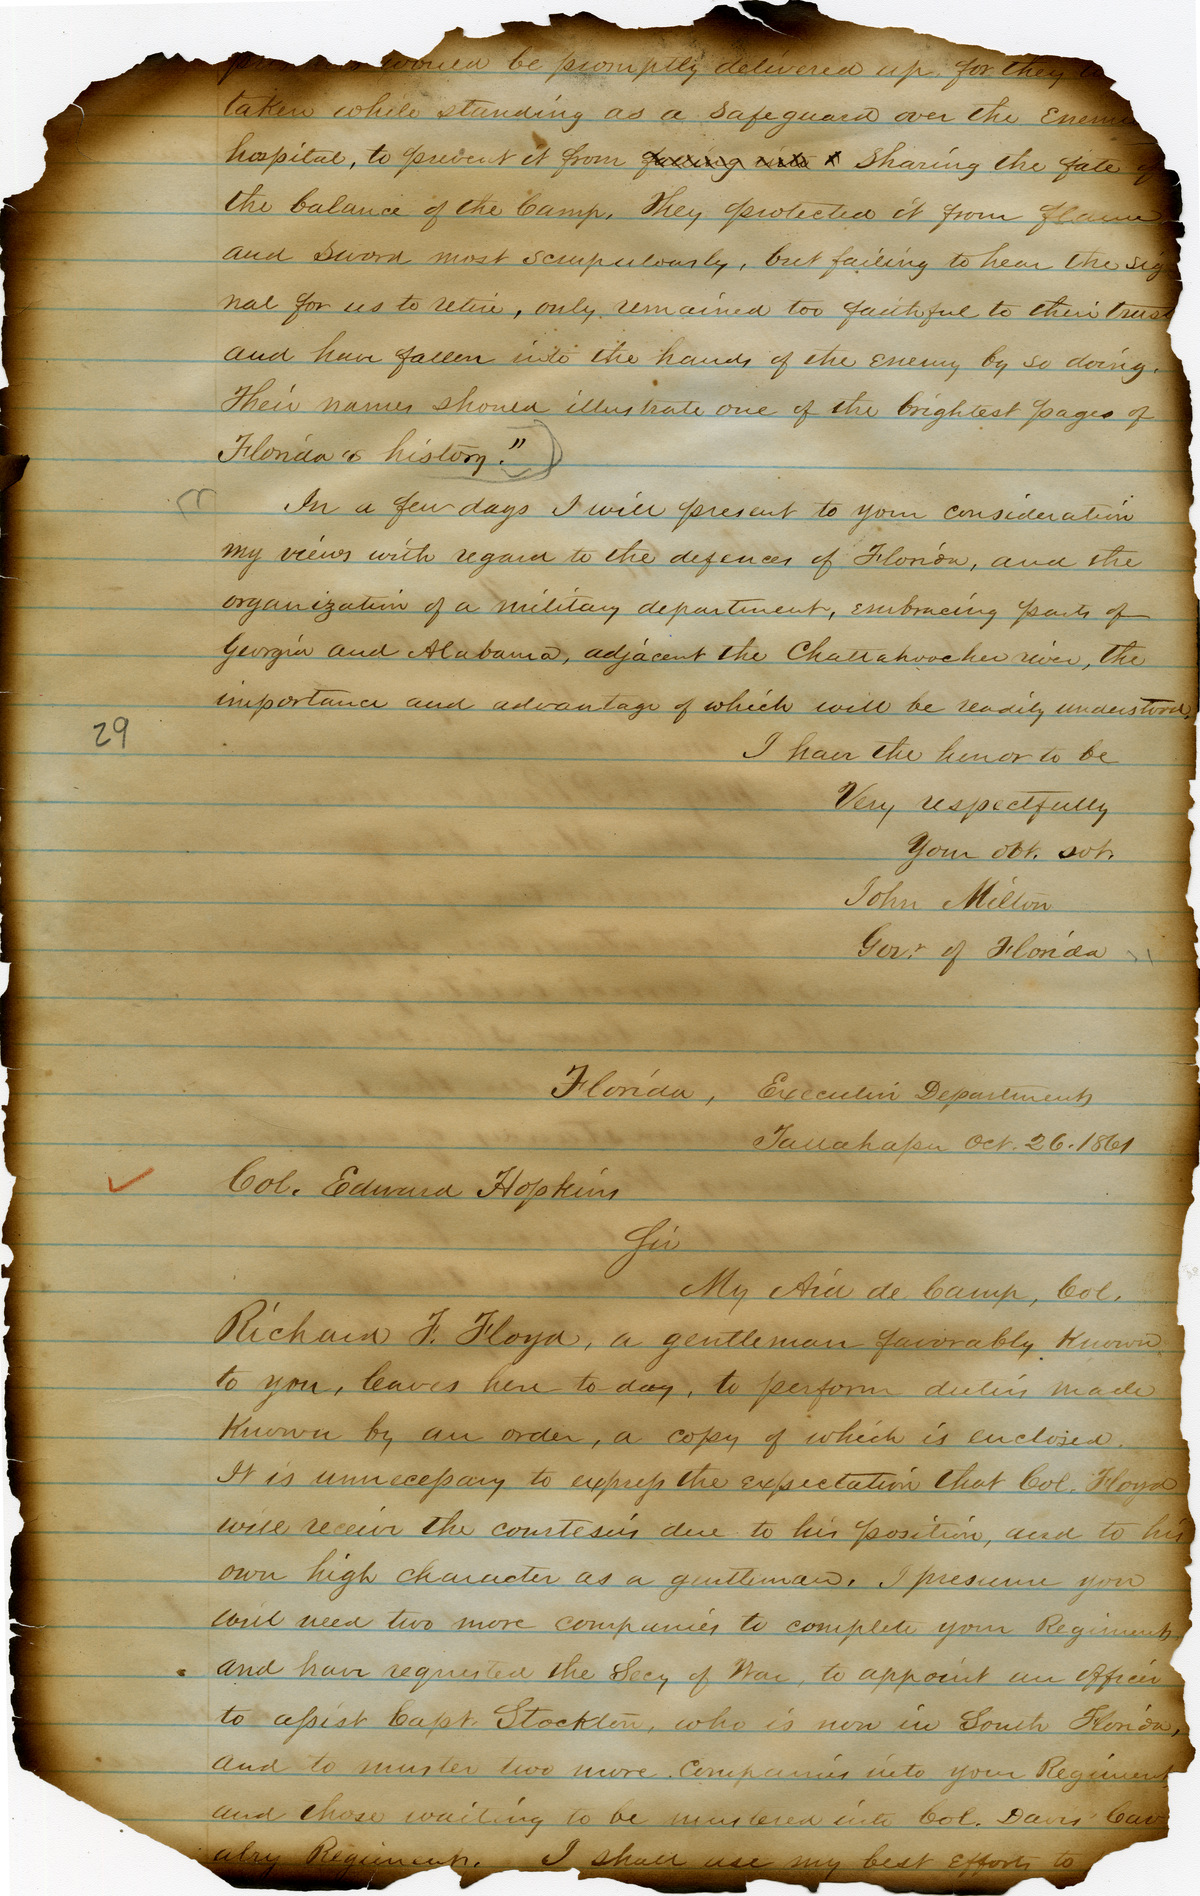 would be promptly delivered up, for they
taken while standing as a safeguard over the Enem
hospital, to prevent it from sharing the fate of
the balance of the Camp. They protected it from flame
and sword most scrupulously, but failing to hear the sig
nal for us to retire, only remained too faithful to their trust
and have fallen into the hands of the Enemy by so doing.
Their names should illustrate one of the brightest pages of
Florida's history."
In a few days I will present to your consideration
my views with regard to the defences of Florida, and the
organization of a military department, embracing parts of
Georgia and Alabama, adjacent the Chattahoochee river, the
importance and advantage of which will be readily understood.
29
I have the honor to be
Very respectfully
Your obt. svt.
John Milton
Govr. of Florida
Florida, Executive Department
Tallahassee Oct. 26. 1861
Col. Edward Hopkins
Sir
My Aid de Camp, Col.
Richard F. Floyd, a gentleman favorably Known
to you, leaves here to-day, to perform duties made
Known by an order, a copy of which is enclosed.
It is unnecessary to express the expectation that Col. Floyd
will receive the courtesies due to his position, and to his
own high character as a gentleman. I presume you
will need two more companies to complete your Regiment,
and have requested the Secy of War, to appoint an Officer
to assist Capt. Stockton, who is now in South Florida,
and to muster two more Companies into your Regiment
and those waiting to be mustered into Col. Davis' Cav
alry Regiment. I shall use my best efforts to